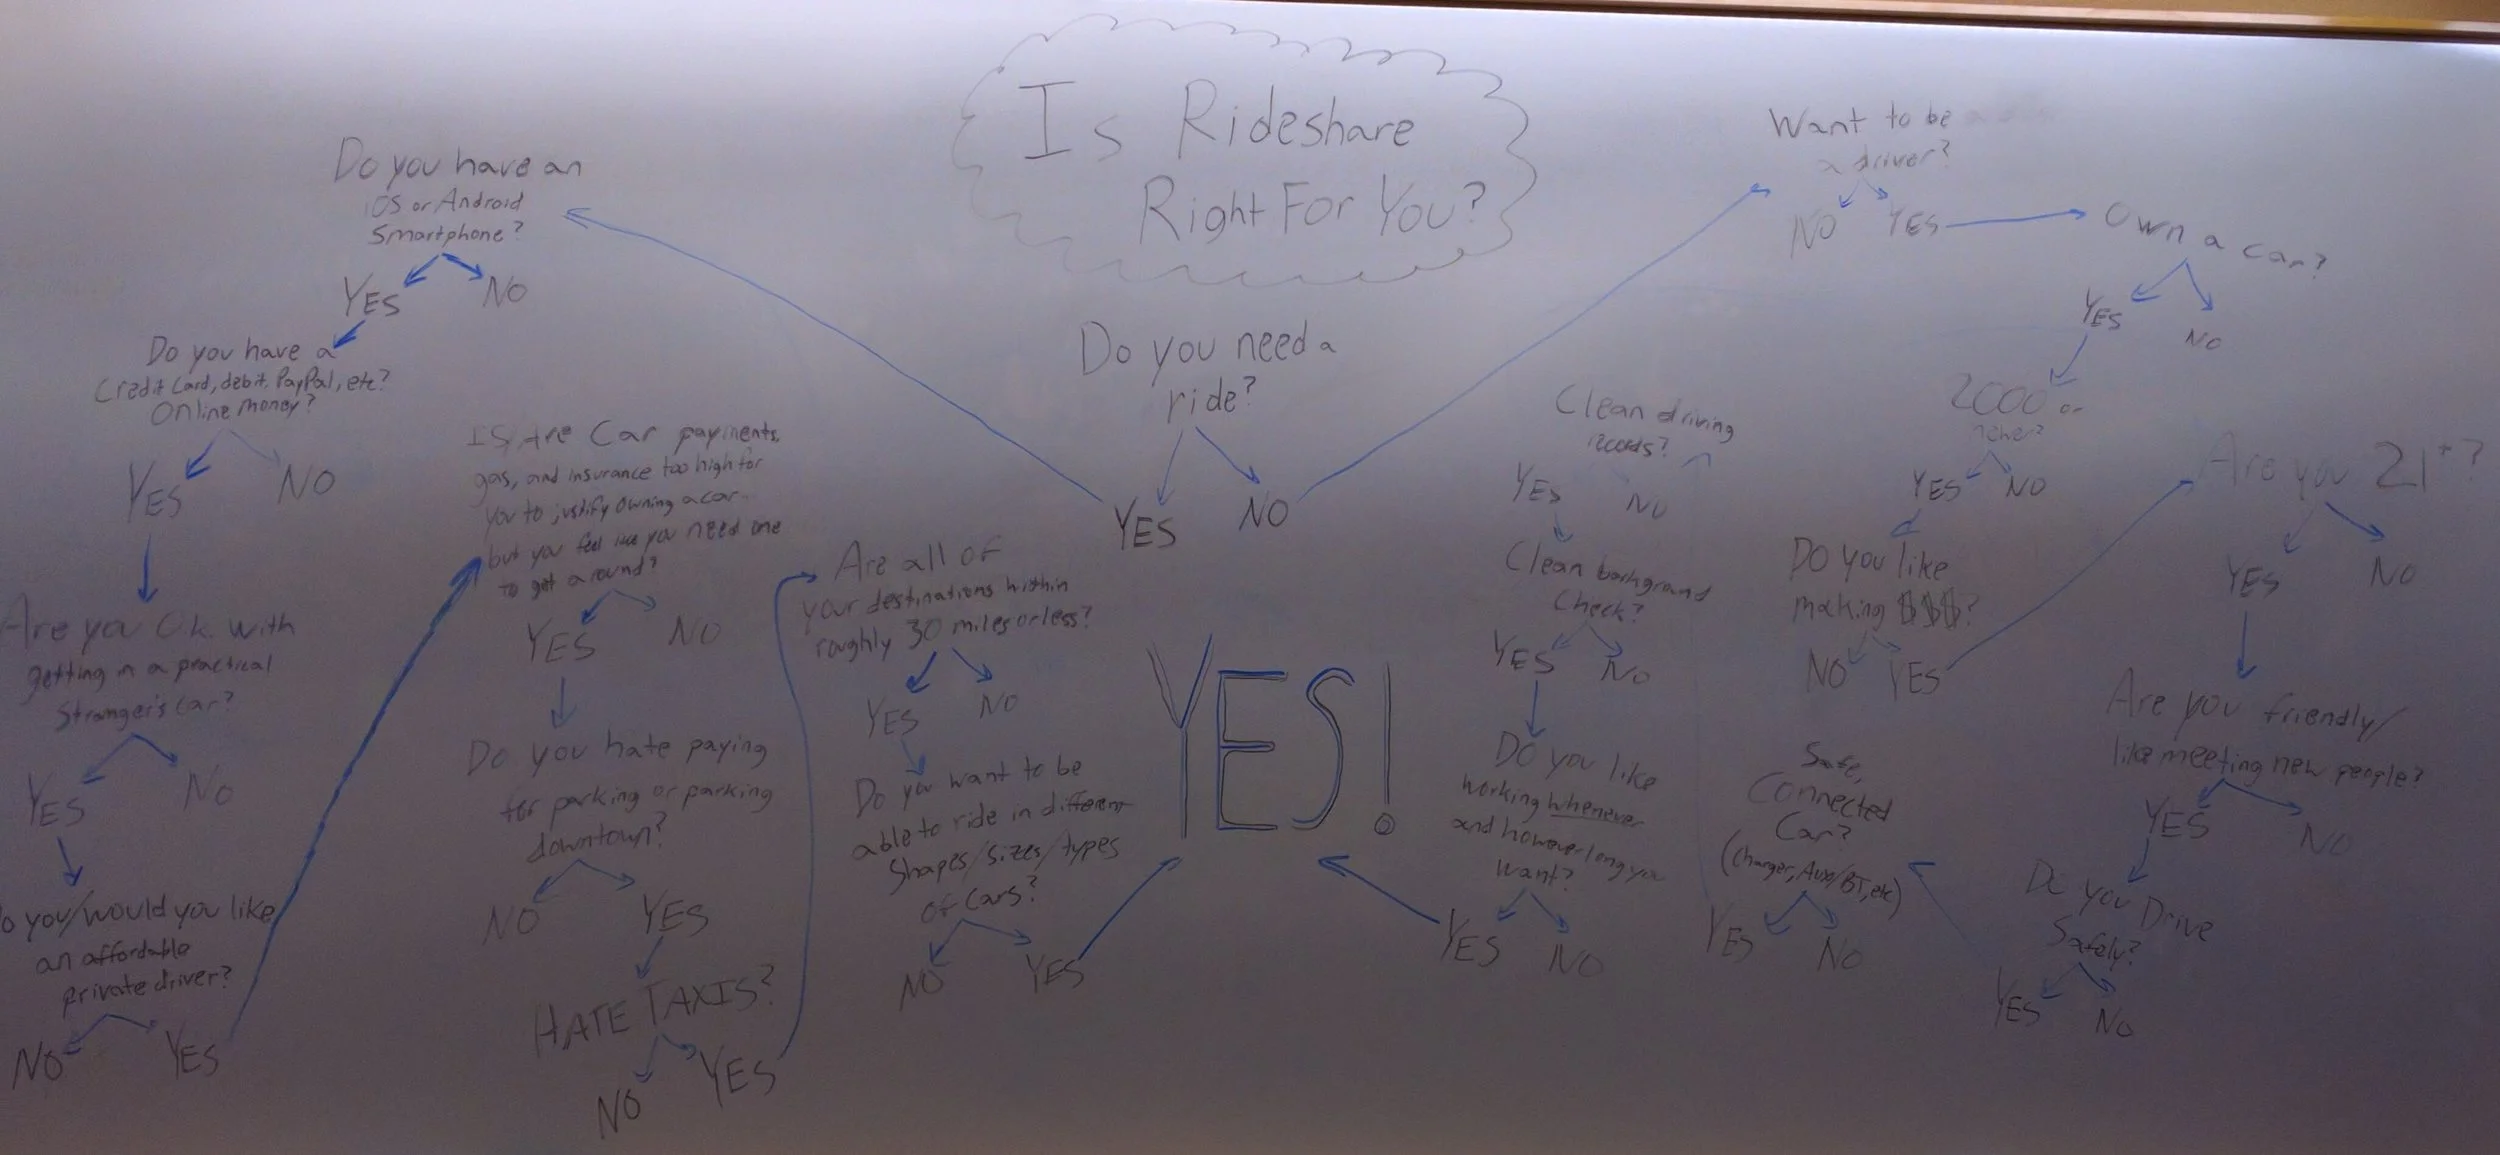 Is Rideshare
Right For You?
Do you need a
ride?
YES
NO
Do you have an
iOS or Android
Smartphone?
YES
NO
Do you have a
Credit Card, debit, PayPal, etc?
Online money?
YES
NO
Are you Ok with
getting in a practical
Stranger's Car?
YES
NO
o you/would you like
an affordable
private driver?
NO
YES
Are Car payments,
gas, and insurance too high for
you to justify owning a car
but you feel like you need one
to get around?
YES
NO
Do you hate paying
for parking or parking
downtown?
NO
YES
HATE TAXIS?
NO
YES
Are all of
your destinations within
roughly 30 miles or less?
YES
NO
Do you want to be
able to ride in different
Shapes/sizes/types
of cars?
NO
YES
YES!
Want to be
a driver?
NO
YES
Own a car?
YES
NO
2000 or
newer?
YES
NO
Do you like
making $$$?
NO
YES
Are you 21+?
YES
NO
Are you friendly/
like meeting new people?
YES
NO
Do you Drive
Safely?
YES
NO
Safe,
Connected
Car?
(Charger, Aux/BT, etc)
YES
NO
Clean driving
records?
YES
NO
Clean background
Check?
YES
NO
Do you like
working whenever
and however long you
want?
YES
NO